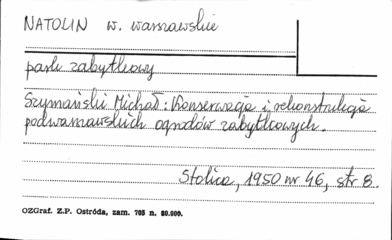 NATOLIN w. warszawskie
park zabytkowy
Szymański Michał: Konserwacja i rekonstrukcja
podwarszawskich ogrodów zabytkowych.
Stolica, 1950 nr 46, str 8.
OZGraf. Z.P. Ostróda, zam. 705 n. 80.000.